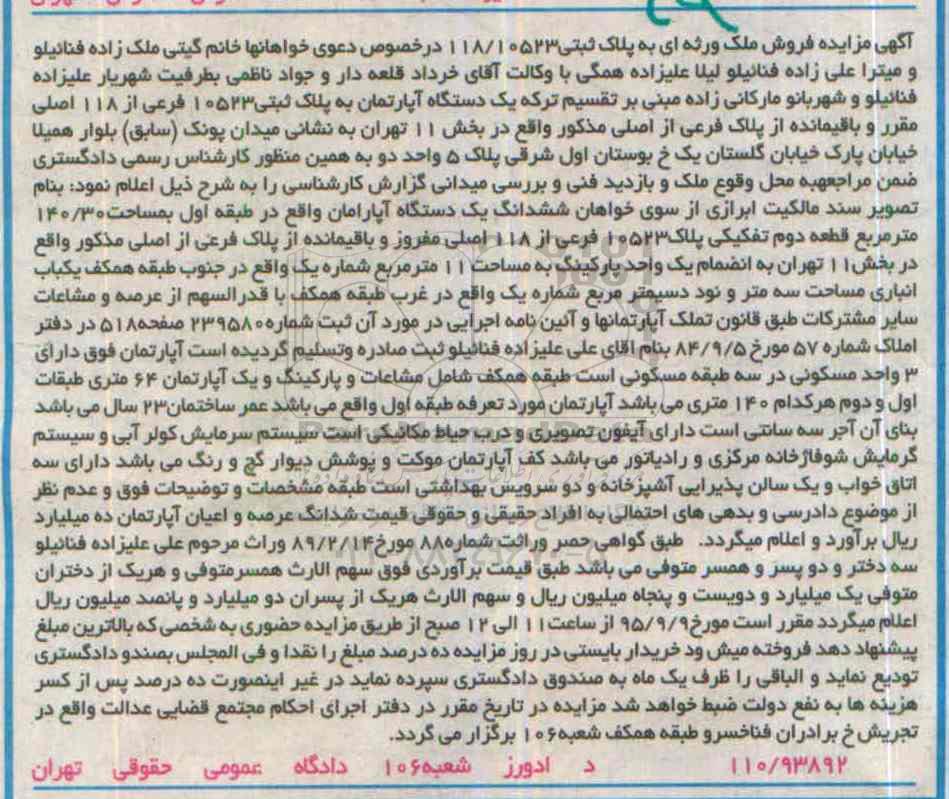 آگهی مزایده فروش ملک ورثه ای به پلاک ثبتی۱۱۸/۱۰۵۲۳ درخصوص دعوی خواهانها خانم گیتی ملک زاده فنائیلو
و میترا علی زاده فنائیلو لیلا علیزاده همگی با وکالت آقای خرداد قلعه دار و جواد ناظمی بطرفیت شهریار علیزاده
فنائیلو و شهربانو مارکانی زاده مبنی بر تقسیم ترکه یک دستگاه آپارتمان به پلاک ثبتی۱۰۵۲۳ فرعی از ۱۱۸ اصلی
مقرر و باقیمانده از پلاک فرعی از اصلی مذکور واقع در بخش ۱۱ تهران به نشانی میدان پونک (سابق) بلوار همیلا
خیابان پارک خیابان گلستان یک خ بوستان اول شرقی پلاک ۵ واحد دو به همین منظور کارشناس رسمی دادگستری
ضمن مراجعهبه محل وقوع ملک و بازدید فنی و بررسی میدانی گزارش کارشناسی را به شرح ذیل اعلام نمود: بنام
تصویر سند مالکیت ابرازی از سوی خواهان ششدانگ یک دستگاه آپارامان واقع در طبقه اول بمساحت۱۴۰/۳۰
مترمربع قطعه دوم تفکیکی پلاک۱۰۵۲۳ فرعی از ۱۱۸ اصلی مفروز و باقیمانده از پلاک فرعی از اصلی مذکور واقع
در بخش۱۱ تهران به انضمام یک واحد پارکینگ به مساحت ۱۱ مترمربع شماره یک واقع در جنوب طبقه همکف یکباب
انباری مساحت سه متر و نود دسیمتر مربع شماره یک واقع در غرب طبقه همکف با قدرالسهم از عرصه و مشاعات
سایر مشترکات طبق قانون تملک آپارتمانها و آئین نامه اجرایی در مورد آن ثبت شماره۲۳۹۵۸۰ صفحه۵۱۸ در دفتر
املاک شماره ۵۷ مورخ ۸۴/۹/۵ بنام آقای علی علیزاده فنائیلو ثبت صادره وتسلیم گردیده است آپارتمان فوق دارای
۳ واحد مسکونی در سه طبقه مسکونی است طبقه همکف شامل مشاعات و پارکینگ و یک آپارتمان ۶۴ متری طبقات
اول و دوم هرکدام ۱۴۰ متری می باشد آپارتمان مورد تعرفه طبقه اول واقع می باشد عمر ساختمان۲۳ سال می باشد
بنای آن آجر سه سانتی است دارای آیفون تصویری و درب حیاط مکانیکی است سیستم سرمایش کولر آبی و سیستم
گرمایش شوفاژخانه مرکزی و رادیاتور می باشد کف آپارتمان موکت و پوشش دیوار گچ و رنگ می باشد دارای سه
اتاق خواب و یک سالن پذیرایی آشپزخانه و دو سرویس بهداشتی است طبقه مشخصات و توضیحات فوق و عدم نظر
از موضوع دادرسی و بدهی های احتمالی به افراد حقیقی و حقوقی قیمت شدانگ عرصه و اعیان آپارتمان ده میلیارد
ریال برآورد و اعلام میگردد. طبق گواهی حصر وراثت شماره۸۸ مورخ۸۹/۲/۱۴ وراث مرحوم علی علیزاده فنائیلو
سه دختر و دو پسر و همسر متوفی می باشد طبق قیمت برآوردی فوق سهم الارث همسرمتوفی و هریک از دختران
متوفی یک میلیارد و دویست و پنجاه میلیون ریال و سهم الارث هریک از پسران دو میلیارد و پانصد میلیون ریال
اعلام میگردد مقرر است مورخ۹۵/۹/۹ از ساعت۱۱ الی ۱۲ صبح از طریق مزایده حضوری به شخصی که بالاترین مبلغ
پیشنهاد دهد فروخته میش ود خریدار بایستی در روز مزایده ده درصد مبلغ را نقدا و فی المجلس بصندو دادگستری
تودیع نماید و الباقی را ظرف یک ماه به صندوق دادگستری سپرده نماید در غیر اینصورت ده درصد پس از کسر
هزینه ها به نفع دولت ضبط خواهد شد مزایده در تاریخ مقرر در دفتر اجرای احکام مجتمع قضایی عدالت واقع در
تجریش خ برادران فناخسرو طبقه همکف شعبه۱۰۶ برگزار می گردد.
۱۱۰/۹۳۸۹۲ د ادورز شعبه۱۰۶ دادگاه عمومی حقوقی تهران